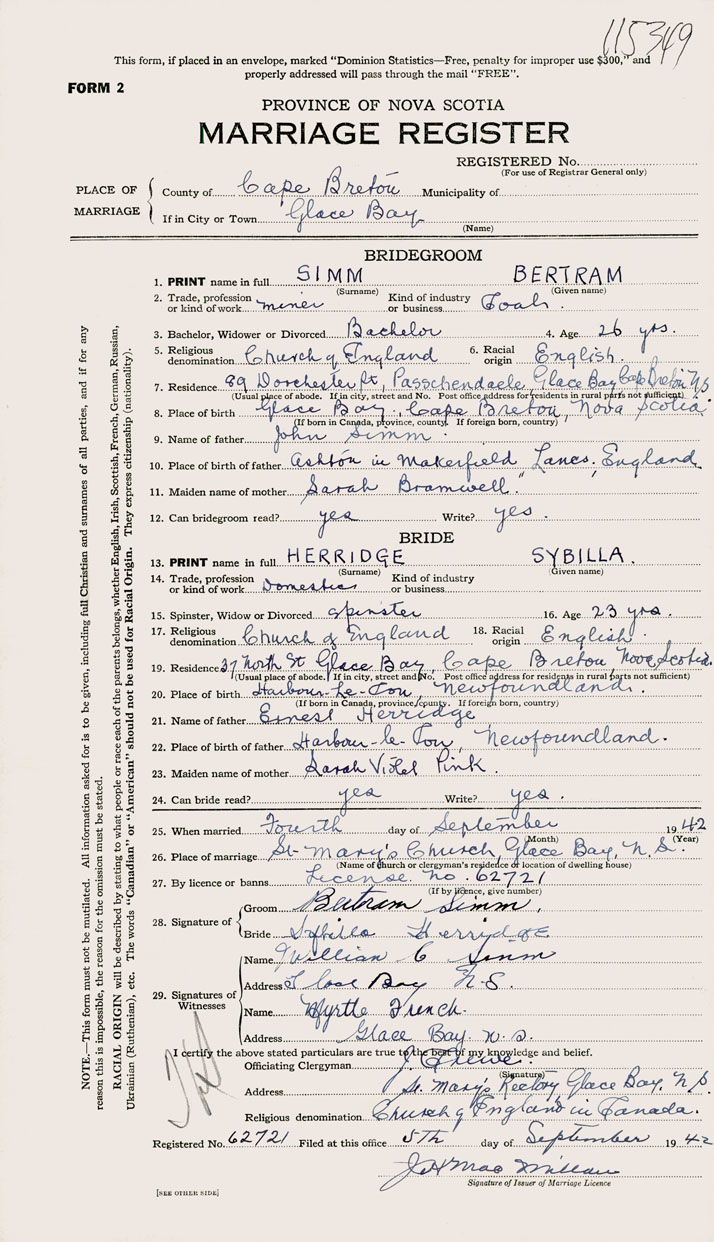 115349
This form, if placed in an envelope, marked "Dominion Statistics—Free, penalty for improper use $300," and
properly addressed will pass through the mail "FREE".
FORM 2
PROVINCE OF NOVA SCOTIA
MARRIAGE REGISTER
REGISTERED No.
(For use of Registrar General only)
PLACE OF MARRIAGE
County of Cape Breton Municipality of
If in City or Town Glace Bay
(Name)
BRIDEGROOM
1. PRINT name in full SIMM BERTRAM
(Surname) (Given name)
2. Trade, profession or kind of work miner Kind of industry or business Coal
3. Bachelor, Widower or Divorced Bachelor 4. Age 26 yrs.
5. Religious denomination Church of England 6. Racial origin English.
7. Residence 89 Dorchester St, Passchendaele, Glace Bay Cape Breton NS
(Usual place of abode. If in city, street and No. Post office address for residents in rural parts not sufficient)
8. Place of birth Glace Bay, Cape Breton, Nova Scotia
(If born in Canada, province, county. If foreign born, country)
9. Name of father John Simm
10. Place of birth of father Ashton in Makerfield Lancs, England
11. Maiden name of mother Sarah Bramwell
12. Can bridegroom read? yes Write? yes.
BRIDE
13. PRINT name in full HERRIDGE SYBILLA.
(Surname) (Given name)
14. Trade, profession or kind of work Domestic Kind of industry or business
15. Spinster, Widow or Divorced spinster 16. Age 23 yrs.
17. Religious denomination Church of England 18. Racial origin English.
19. Residence 37 North St Glace Bay, Cape Breton, Nova Scotia.
(Usual place of abode. If in city, street and No. Post office address for residents in rural parts not sufficient)
20. Place of birth Harbour-Le-Cou, Newfoundland.
(If born in Canada, province, county. If foreign born, country)
21. Name of father Ernest Herridge
22. Place of birth of father Harbour-le-Cou, Newfoundland.
23. Maiden name of mother Sarah Violet Pink.
24. Can bride read? yes Write? yes.
25. When married Fourth day of September 1942
(Month) (Year)
26. Place of marriage St-Mary's Church, Glace Bay, N.S.
(Name of church or clergyman's residence or location of dwelling house)
27. By licence or banns License no. 62721
(If by licence, give number)
28. Signature of
Groom Bertram Simm.
Bride Sybilla Herridge
29. Signatures of Witnesses
Name William C Simm
Address Glace Bay N.S.
Name Myrtle French.
Address Glace Bay. N.S.
I certify the above stated particulars are true to the best of my knowledge and belief.
Officiating Clergyman J.
(Signature)
Address St. Mary's Rectory Glace Bay. N.S.
Religious denomination Church of England in Canada.
Registered No. 62721 Filed at this office 5th day of September 1942
J H MacMillan
Signature of Issuer of Marriage Licence
[SEE OTHER SIDE]
NOTE.—This form must not be mutilated. All information asked for is to be given, including full Christian and surnames of all parties, and if for any
reason this is impossible, the reason for the omission must be stated.
RACIAL ORIGIN will be described by stating to what people or race each of the parents belongs, whether English, Irish, Scottish, French, German, Russian,
Ukrainian (Ruthenian), etc. The words "Canadian" or "American" should not be used for Racial Origin. They express citizenship (nationality).